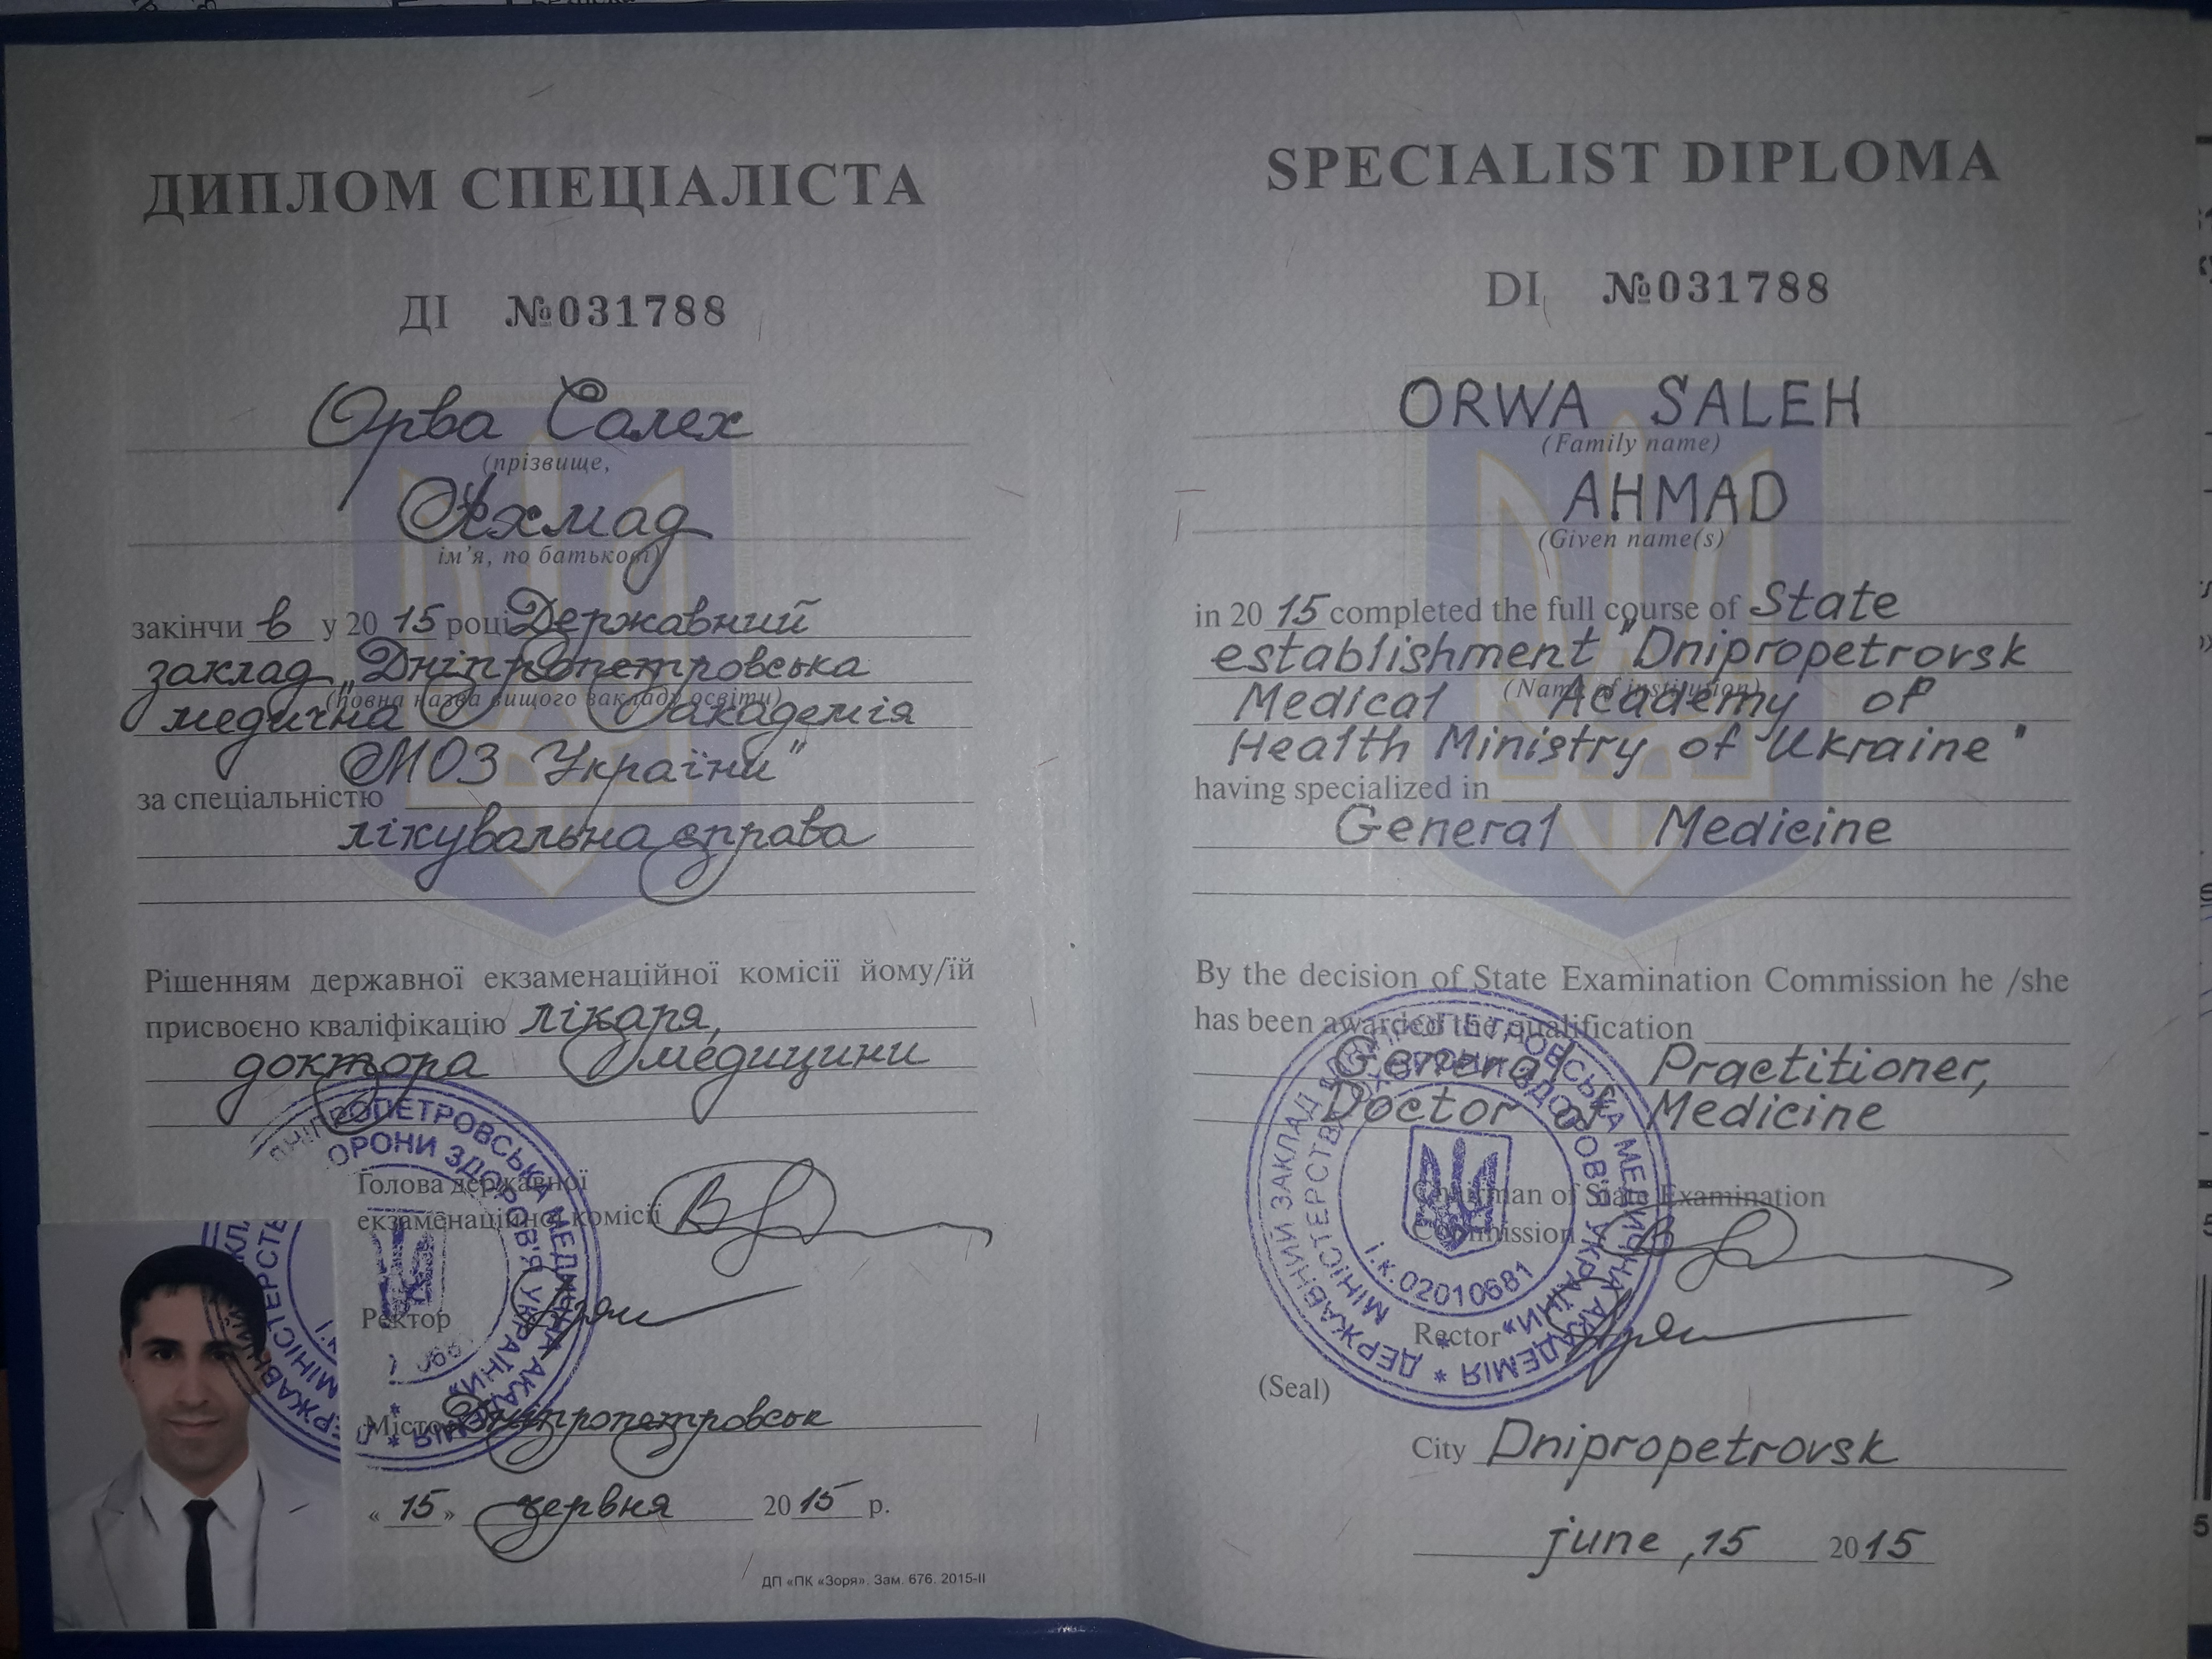 ДИПЛОМ СПЕЦІАЛІСТА
ДІ №031788
Орва Салех
(прізвище,
Ахмад
ім'я, по батькові)
закінчив у 2015 році Державний
заклад "Дніпропетровська
медична академія
(повна назва вищого закладу освіти)
МОЗ України"
за спеціальністю
лікувальна справа
Рішенням державної екзаменаційної комісії йому/їй
присвоєно кваліфікацію лікаря,
доктора медицини
Голова державної
екзаменаційної комісії
Ректор
Місто Дніпропетровськ
« 15 » червня 2015 р.
ДП «ПК «Зоря» Зам. 676. 2015-ІІ
SPECIALIST DIPLOMA
DI №031788
ORWA SALEH
(Family name)
AHMAD
(Given name(s)
in 2015 completed the full course of State
establishment "Dnipropetrovsk
Medical Academy of
(Name of institution)
Health Ministry of Ukraine"
having specialized in
General Medicine
By the decision of State Examination Commission he /she
has been awarded the qualification
General Practitioner,
Doctor of Medicine
Chairman of State Examination
Commission
Rector
(Seal)
City Dnipropetrovsk
june, 15 2015
ДЕРЖАВНИЙ ЗАКЛАД
МІНІСТЕРСТВО
02010681